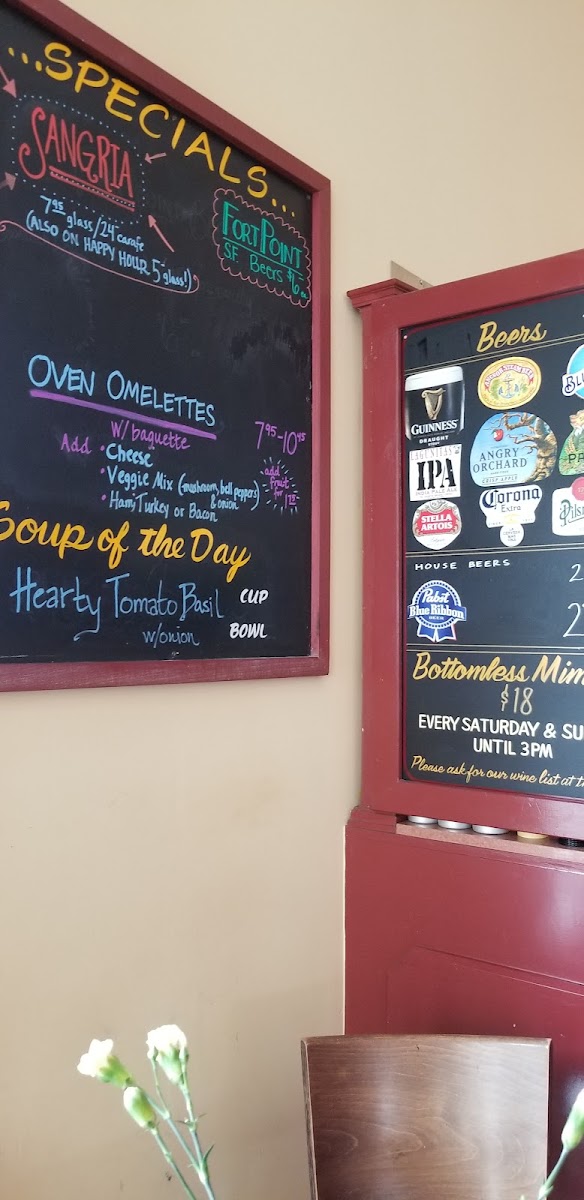 ...SPECIALS...
SANGRIA
7.95 glass/24- carafe
(ALSO ON HAPPY HOUR 5- glass!)
FORT POINT
SF Beers $6 ea
OVEN OMELETTES
w/ baguette
7.95-10.45
Add • Cheese
• Veggie Mix (mushroom, bell peppers & onion)
• Ham, Turkey or Bacon
add fruit for
Soup of the Day
Hearty Tomato Basil
w/onion
CUP
BOWL
Beers
GUINNESS
DRAUGHT
BLU
LAGUNITAS
IPA
INDIA PALE ALE
ANGRY ORCHARD
CRISP APPLE
PA
STELLA ARTOIS
Corona
Extra
Pils
HOUSE BEERS
2
Pabst
Blue Ribbon
BEER
2
Bottomless Mim
$18
EVERY SATURDAY & SU
UNTIL 3PM
Please ask for our wine list at th